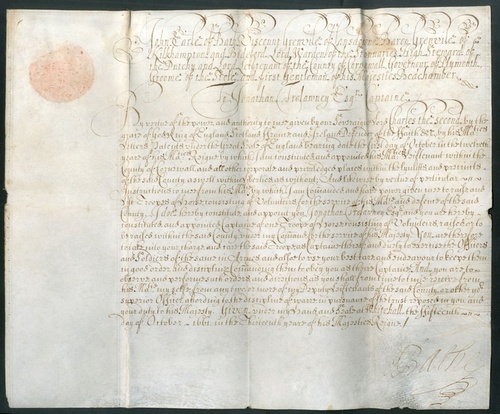 John Earle of Bath Viscount Grenvile of Lansdowne Baron Grenvile of
Kilkhampton and Lord Warden of the Stannaries High Steward of
the Duchy and Lord of Cornwall Governour of Plymouth
Groome of the Stole and first Gentleman of his Majesties Bedchamber
To Jonathan Trelawney Esqr Captaine
By vertue of the power and authority to me given by our Soveraigne Lord Charles the second by the
grace of God King of England Scotland France and Ireland Defender of the Faith &c by his Maties
Letters Patents under the Great Seale of England bearing date the first day of October in the twelveth
yeare of his Maties Reigne by which I am constituted and appointed his Maties Lieftenant within the
County of Cornwall and all other
of the said County
Instructions by which I am and power given me to raise and
Troopes of horse consisting of Volunteers for the service of his Matie and defence of the said
County I doe hereby constitute and appoint you Jonathan Trelawney Esqr and you are hereby
constituted and appointed Captaine of a Troope of horse consisting of Volunteers raised or to
be raised within the said County under my Command for the service of his Majesty You are therefore
to take into your charge and care the said Troope as Captaine thereof and duly to exercise the Officers
and Souldiers of the same in Armes and also to use your best care and endeavour to keepe them
in good order and discipline Commanding them to obey you as their Captaine And you are to
observe and follow such orders and directions as you shall from time to time receive from
his Matie my selfe or any of my Deputy Lieftenants of the said County or other
superior Officer according to the discipline of warre in pursuance of the trust reposed in you and
your duty to his Majesty. Given under my hand and Seale at Whitehall the fifteenth
day of October 1661 in the thirteenth yeare of his Majesties Reigne
Bathe